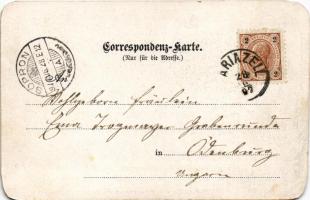 Correspondenz-Karte.
(Nur für die Adresse.)
SOPRON
ARIAZELL
2
2
Wohlgeborn Fräulein
Ema Grabenrunde
in Ödenburg
Ungarn